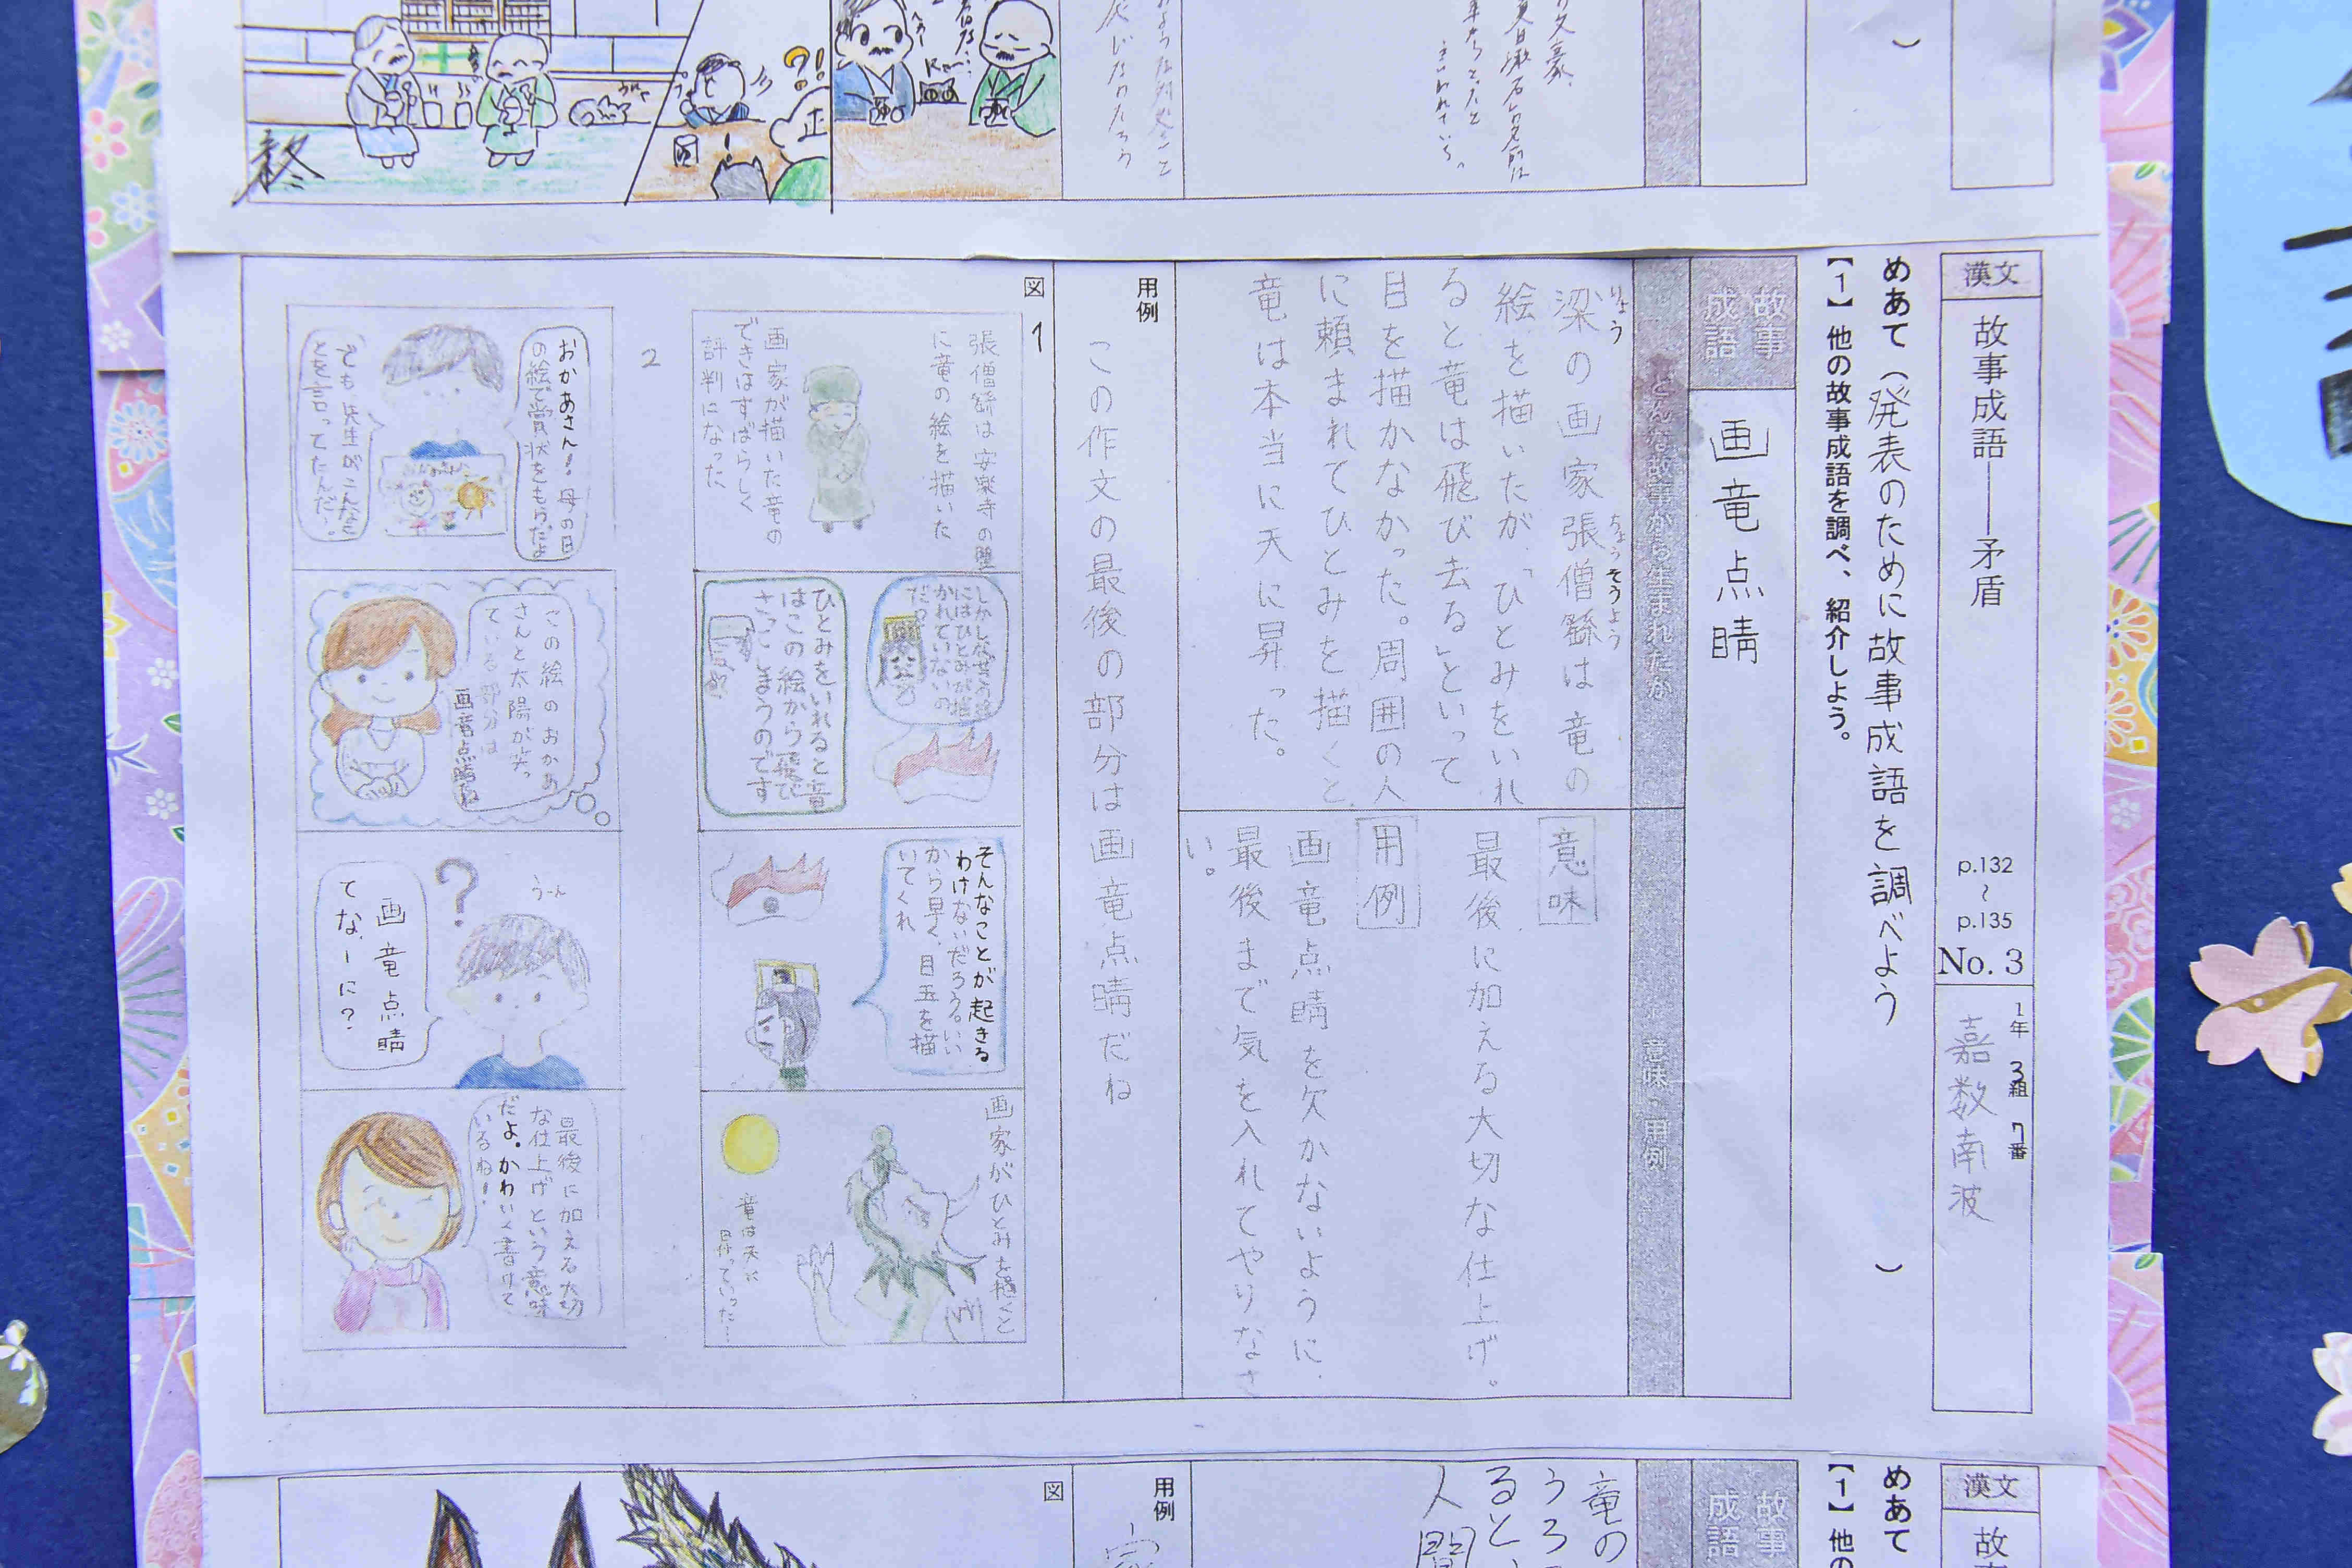 漢文
故事成語――矛盾
p.132
~
p.135
No. 3
1年 3組 7番
嘉数南波
めあて(発表のために故事成語を調べよう)
【1】他の故事成語を調べ、紹介しよう。
故事成語
画竜点睛
どんな故事から生まれたか
梁の画家張僧繇は竜の
りょう
ちょうそうよう
絵を描いたが、「ひとみをいれ
ると竜は飛び去る」といって
目を描かなかった。周囲の人
に頼まれてひとみを描くと
竜は本当に天に昇った。
意味・用例
意味
最後に加える大切な仕上げ。
用例
画竜点睛を欠かないように、
最後まで気を入れてやりなさ
い。
用例
この作文の最後の部分は画竜点睛だね
図
1
張僧繇は安楽寺の壁
に竜の絵を描いた
画家が描いた竜の
できはすばらしく
評判になった
しかしなぜ
にはひとみが描
かれていないの
だ?
ひとみをいれると竜
はこの絵から飛び
さってしまうのです
そんなことが起きる
わけないだろう。いい
から早く、目玉を描
いてくれ
画家がひとみを描くと
竜は天に
昇っていった…
2
おかあさん!母の日
の絵で賞状をもらったよ
でも先生がこんなこ
とを言ってたんだ。
この絵のおかあ
さんと太陽が笑っ
ている部分は
画竜点睛ね
うーん
?
画竜点睛
てなーに?
最後に加える大切
な仕上げという意味
だよ。かわいく書けて
いるね!
文豪、
夏目漱石の名前は
といわれている。
?!
正
終
漢文
めあて
【1】他の
故事成語
竜の
うろ
ると
人間
用例
図